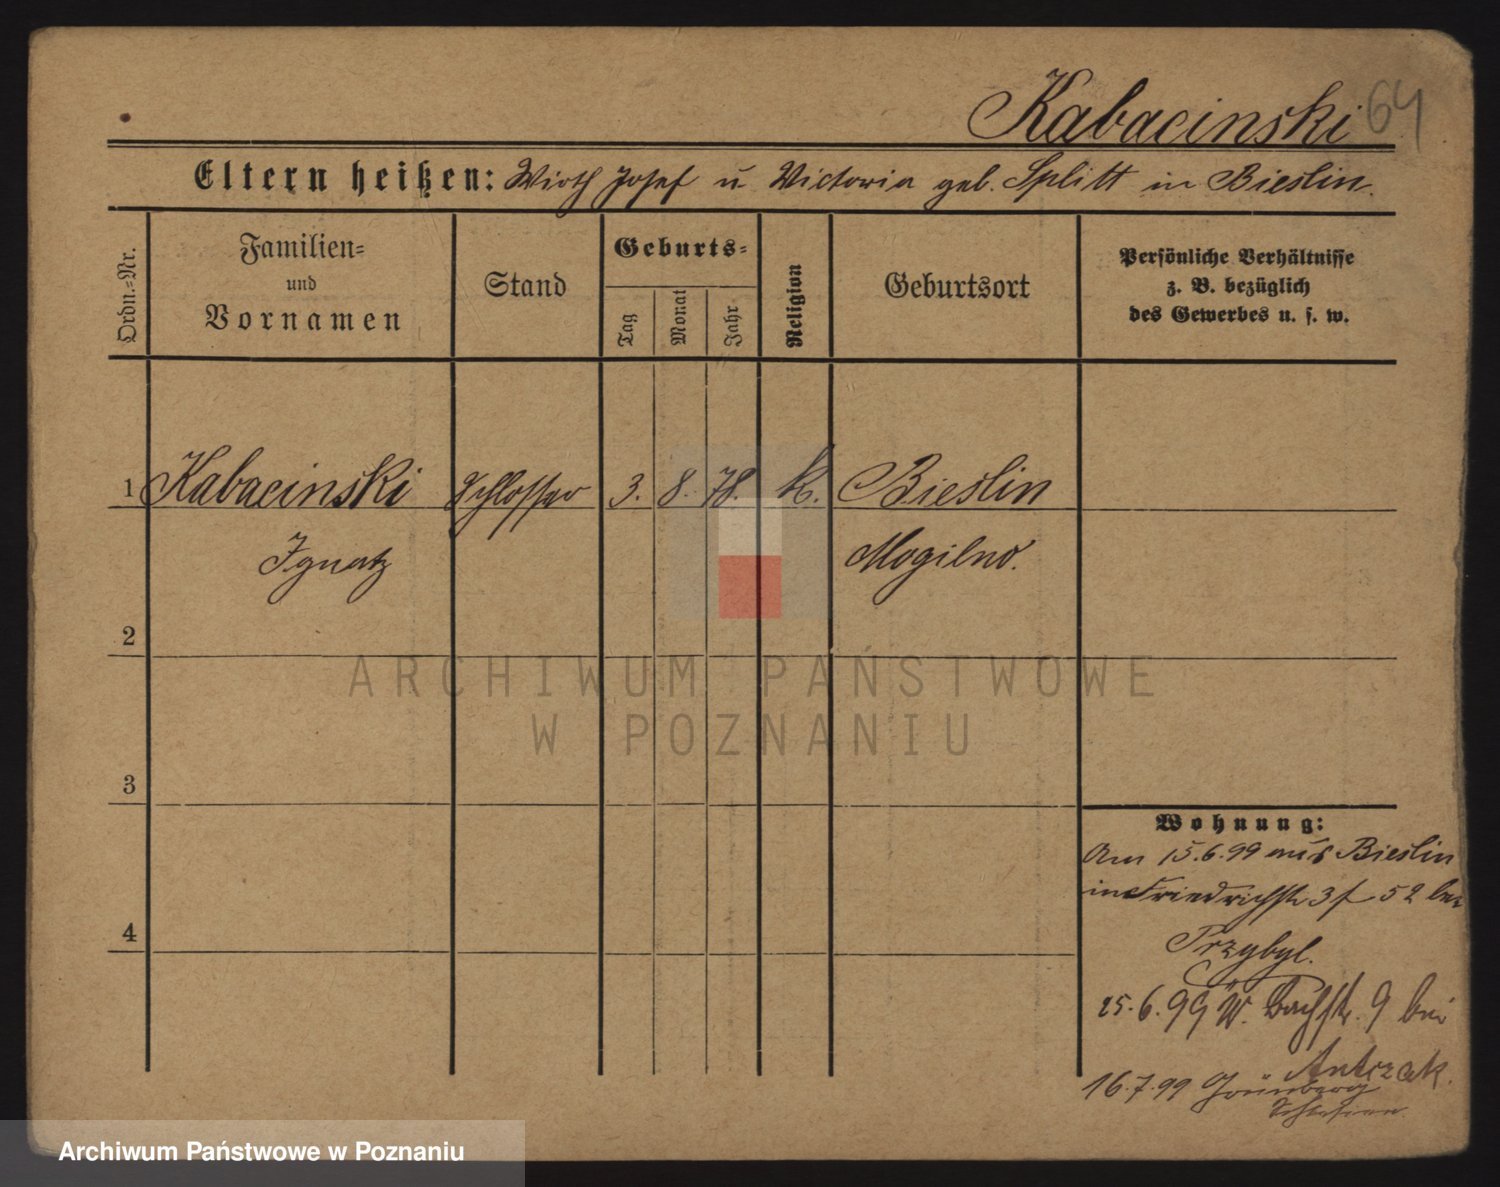 Kabacinski 64
Eltern heißen: Wirth Josef u Victoria geb. Splitt in Bieslin.
Ordn.-Nr.
Familien-
und
Vornamen
Stand
Geburts-
Tag
Monat
Jahr
Religion
Geburtsort
Persönliche Verhältnisse
z. B. bezüglich
des Gewerbes u. s. w.
1 Kabacinski Schlosser 3. 8. 78. k. Bieslin
Ignatz Mogilno.
2
ARCHIWUM PAŃSTWOWE
W POZNANIU
3
Wohnung:
Am 15.6.99 aus Bieslin
in Friedrichstr 31 52 bei
4
Przybyl.
25.6.99 W. Bachstr. 9 bei
Antczak.
16.7.99 Grünberg
Schlesien.
Archiwum Państwowe w Poznaniu